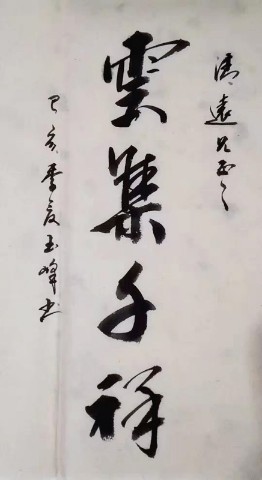 清遠兄正之
雲集千祥
己亥季夏玉峰書